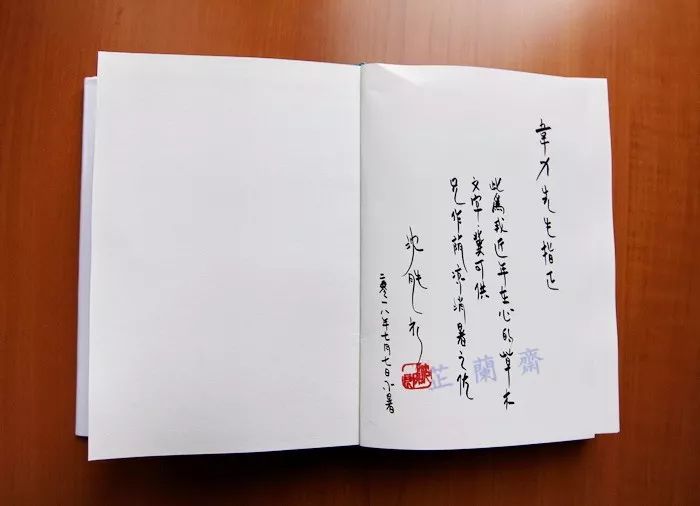 韋力先生指正
此為我近年在心的草木
文字,冀可供
兄作荫凉消暑之
沈胜衣
二〇一八年七月七日小暑
芷蘭齋